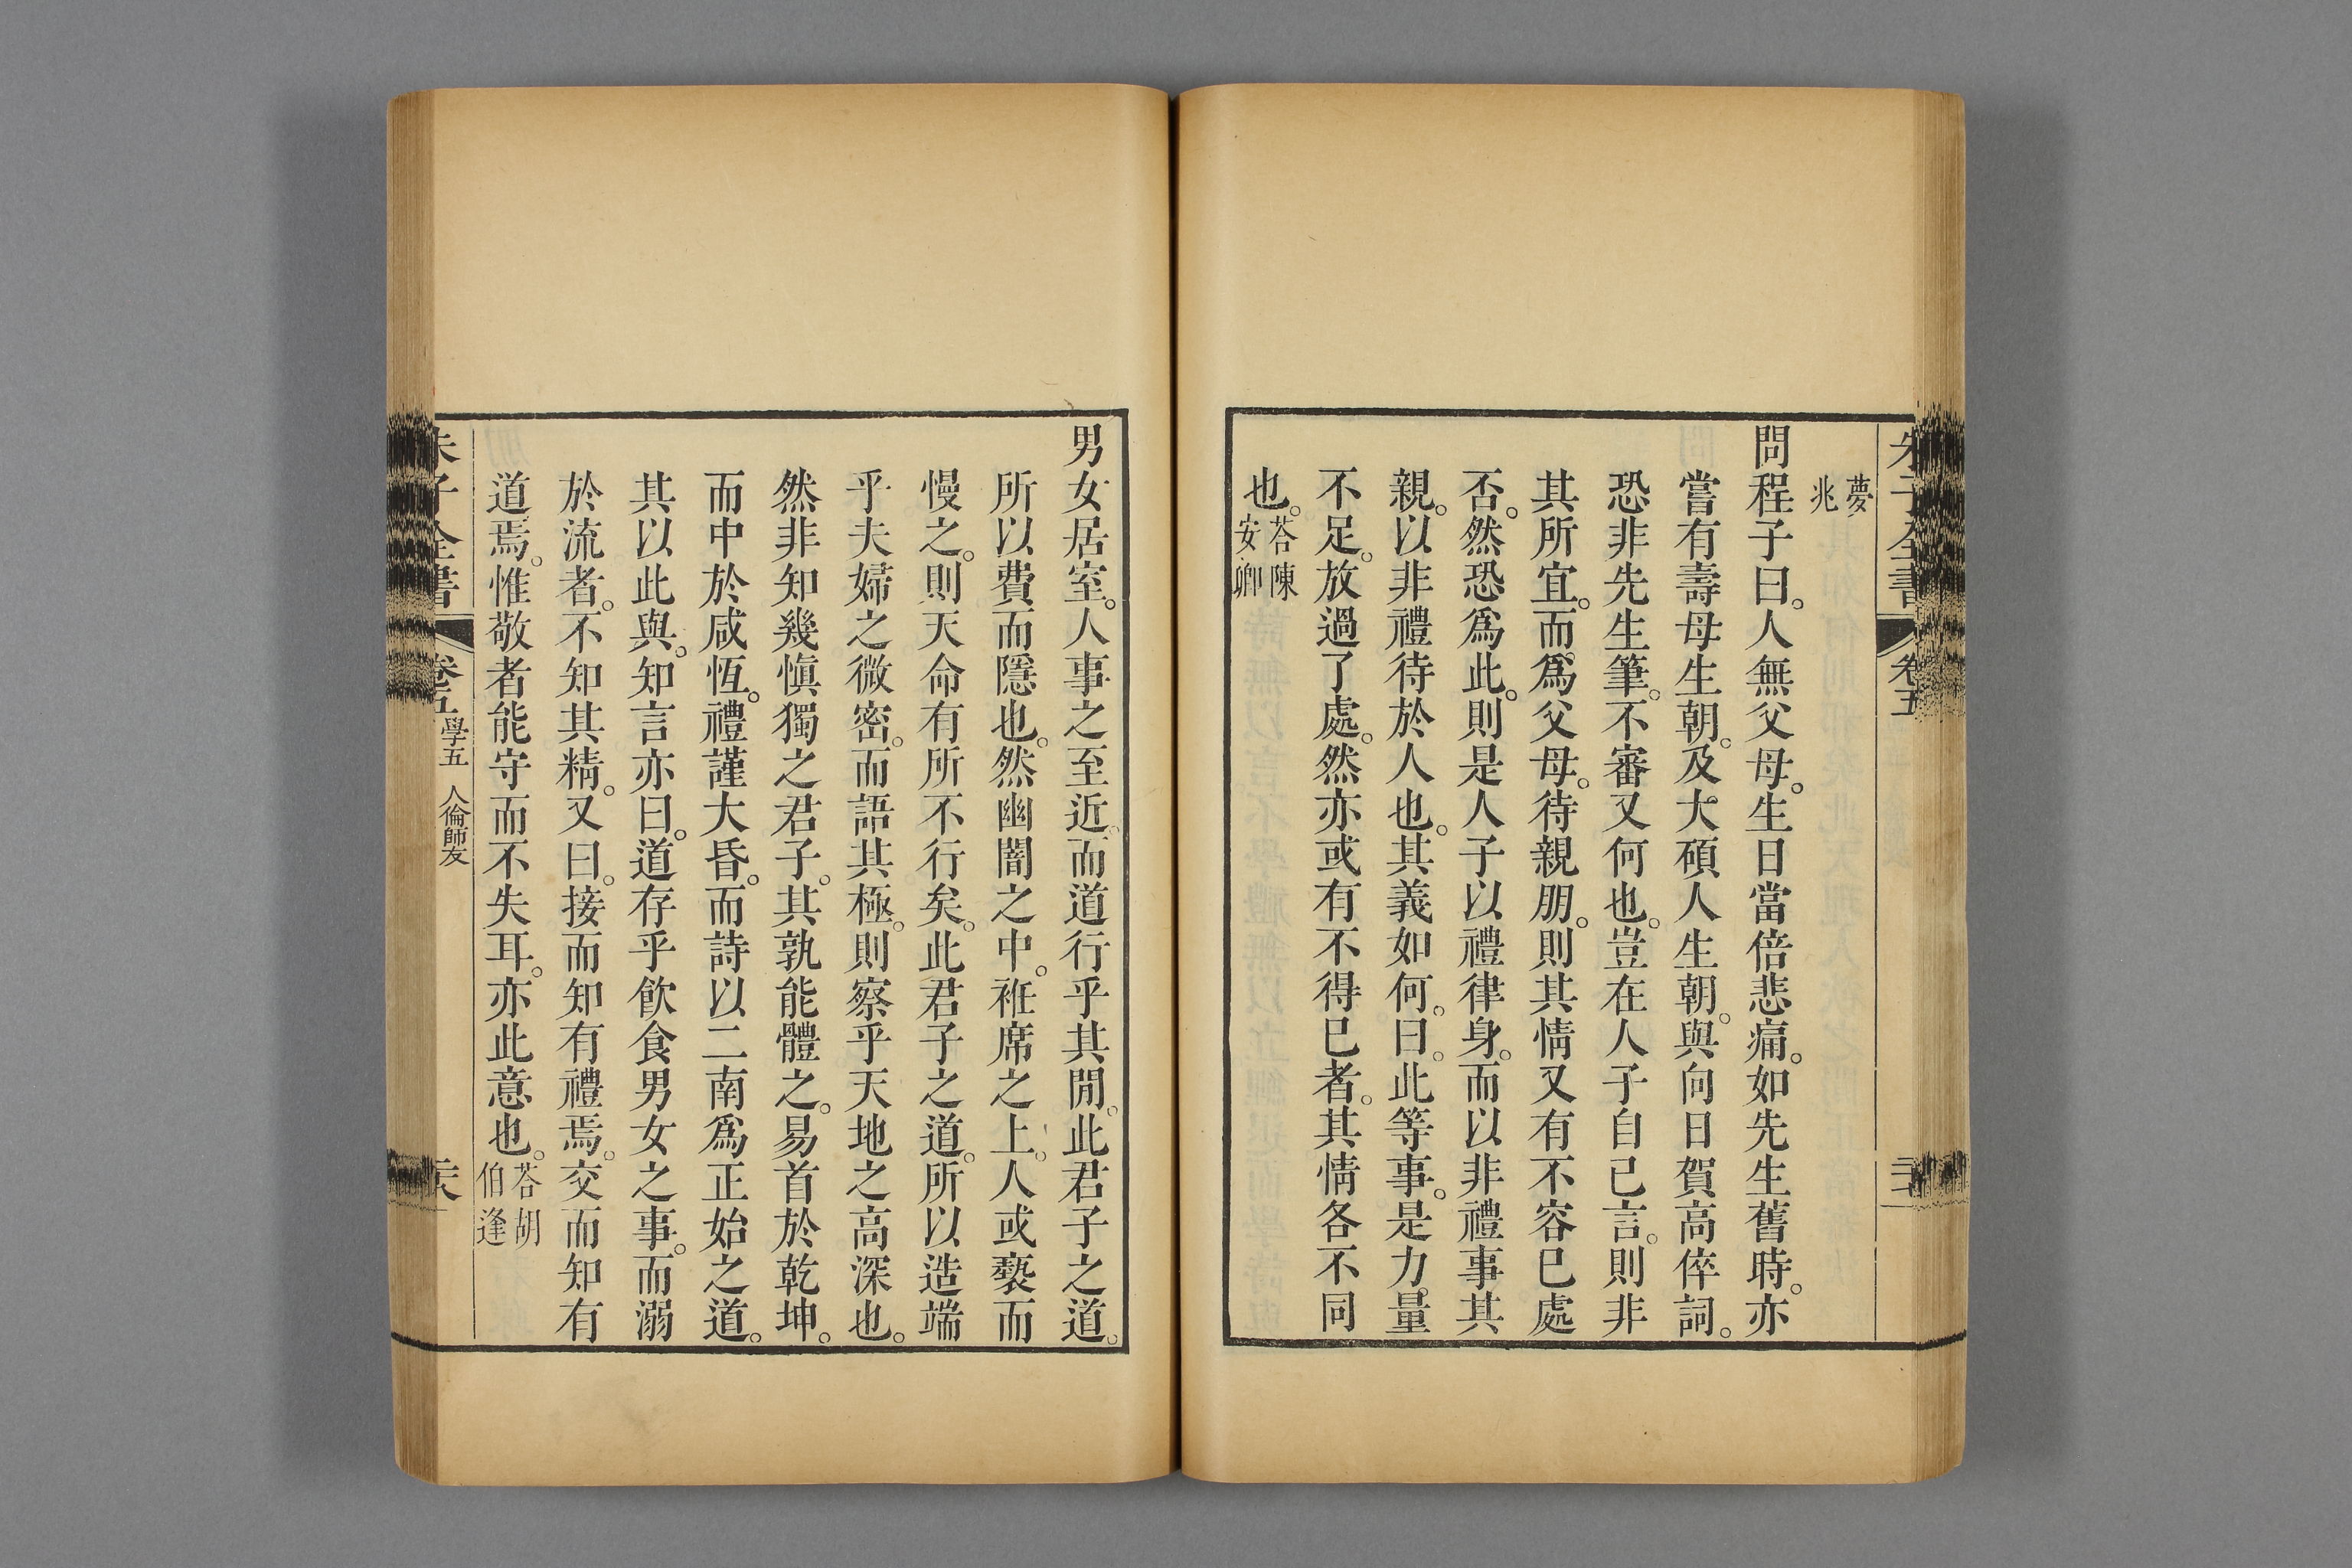 朱子全書 卷五
夢兆
問程子曰。人無父母。生日當倍悲痛。如先生舊時。亦
嘗有壽母生朝。及大碩人生朝。與向日賀高倅詞。
恐非先生筆。不審又何也。豈在人子自己言。則非
其所宜。而爲父母。待親朋。則其情又有不容已處
否。然恐爲此。則是人子以禮律身。而以非禮事其
親。以非禮待於人也。其義如何。曰。此等事。是力量
不足。放過了處。然亦或有不得已者。其情各不同
也。荅陳安卿
男女居室。人事之至近。而道行乎其閒。此君子之道。
所以費而隱也。然幽闇之中。袵席之上。人或褻而
慢之。則天命有所不行矣。此君子之道。所以造端
乎夫婦之微密。而語其極。則察乎天地之高深也。
然非知幾愼獨之君子。其孰能體之。易首於乾坤。
而中於咸恆。禮謹大昏。而詩以二南爲正始之道。
其以此與。知言亦曰。道存乎飮食男女之事。而溺
於流者。不知其精。又曰。接而知有禮焉。交而知有
道焉。惟敬者能守而不失耳。亦此意也。荅胡伯逢
朱子全書 卷五 學五 人倫師友